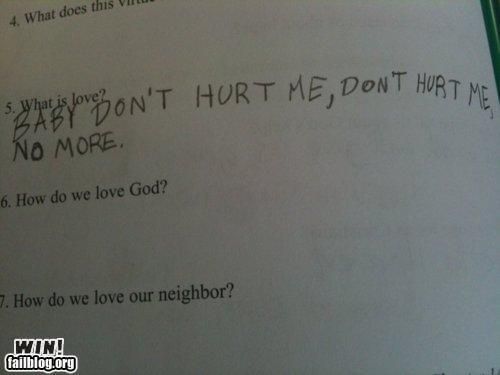 4. What does this
5. What is love?
BABY DON'T HURT ME, DON'T HURT ME,
NO MORE.
6. How do we love God?
7. How do we love our neighbor?
WIN!
failblog.org